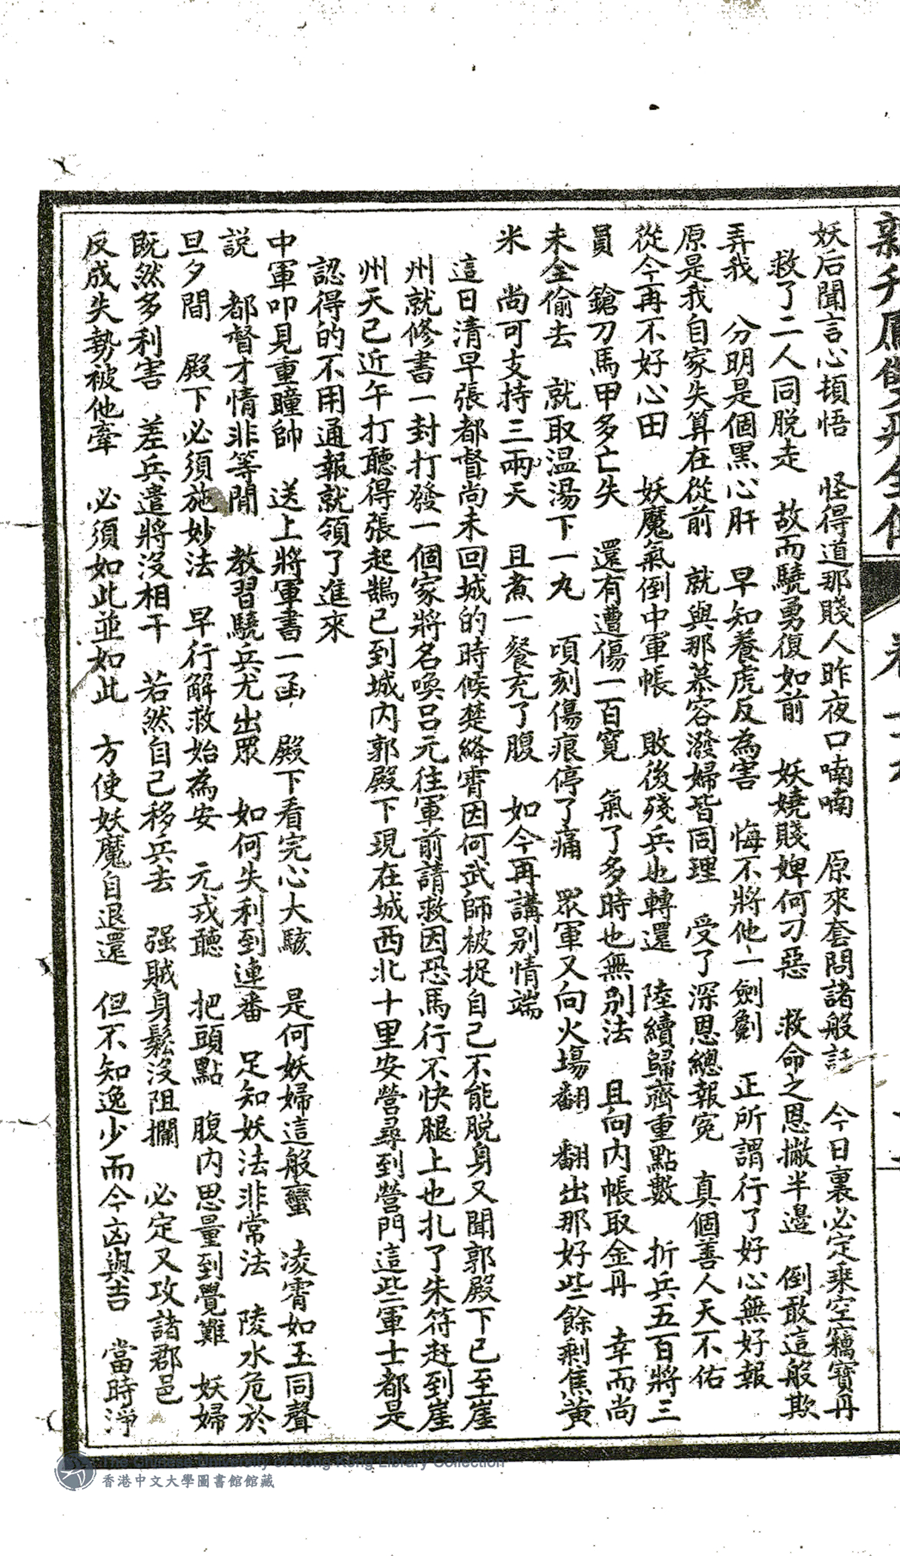 妖后聞言心頓悟　怪得道那賤人昨夜口喃喃　原來套問諸般話　今日裏必定乘空竊寶丹
救了二人同脫走　故而驍勇復如前　妖嬈賤婢何刁惡　救命之恩撇半邊　倒敢這般欺
弄我　分明是個黑心肝　早知養虎反為害　悔不將他一劍劖　正所謂行了好心無好報
原是我自家失算在從前　就與那慕容潑婦皆同理　受了深恩總報冤　真個善人天不佑
從今再不好心田　妖魔氣倒中軍帳　敗後殘兵也轉還　陸續歸齊重點數　折兵五百將三
員　鎗刀馬甲多亡失　還有遭傷一百寬　氣了多時也無別法　且向內帳取金丹　幸而尚
未全偷去　就取温湯下一丸　頃刻傷痕停了痛　眾軍又向火場翻　翻出那好些餘剩焦黃
米　尚可支持三兩天　且煮一餐充了腹　如今再講別情端
這日清早張都督尚未回城的時候楚絳霄因何武師被捉自己不能脫身又聞郭殿下已至崖
州就修書一封打發一個家將名喚呂元往軍前請救因恐馬行不快腿上也扎了朱符赶到崖
州天已近午打聽得張起鵠已到城內郭殿下現在城西北十里安營尋到營門這些軍士都是
認得的不用通報就領了進來
中軍叩見重瞳帥　送上將軍書一函　殿下看完心大駭　是何妖婦這般蠻　淩霄如玉同聲
説　都督才情非等閒　教習驍兵尤出眾　如何失利到連番　足知妖法非常法　陵水危於
旦夕間　殿下必須施妙法　早行解救始為安　元戎聽　把頭點　腹內思量到覺難　妖婦
既然多利害　差兵遣將沒相干　若然自己移兵去　强賊身鬆沒阻攔　必定又攻諸郡邑
反成失勢被他牽　必須如此並如此　方使妖魔自退還　但不知逸少而今凶與吉　當時淨
香港中文大學圖書館館藏